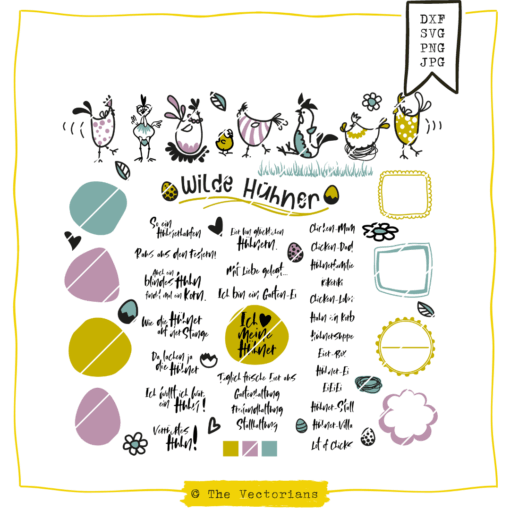 DXF
SVG
PNG
JPG
Wilde Hühner
So ein
Hühnerhaufen
Raus aus den Federn!
Auch ein
blindes Huhn
findet mal ein Korn.
Wie die Hühner
auf der Stange
Da lachen ja
die Hühner
Ich wollt ich wär
ein Huhn!
Verrücktes
Huhn!
Eier von glücklichen
Hühnern.
Mit Liebe gelegt...
Ich bin ein Garten-Ei
Ich
meine
Hühner
Täglich frische Eier aus
Gartenhaltung
Freilandhaltung
Stallhaltung
Chicken-Mom
Chicken-Dad
Hühnerfamilie
Kikeriki
Chicken-Lady
Huhn im Korb
Hühnersuppe
Eier-Box
Hühner-Ei
EiEiEi
Hühner-Stall
Hühner-Villa
Let it Chick
© The Vectorians